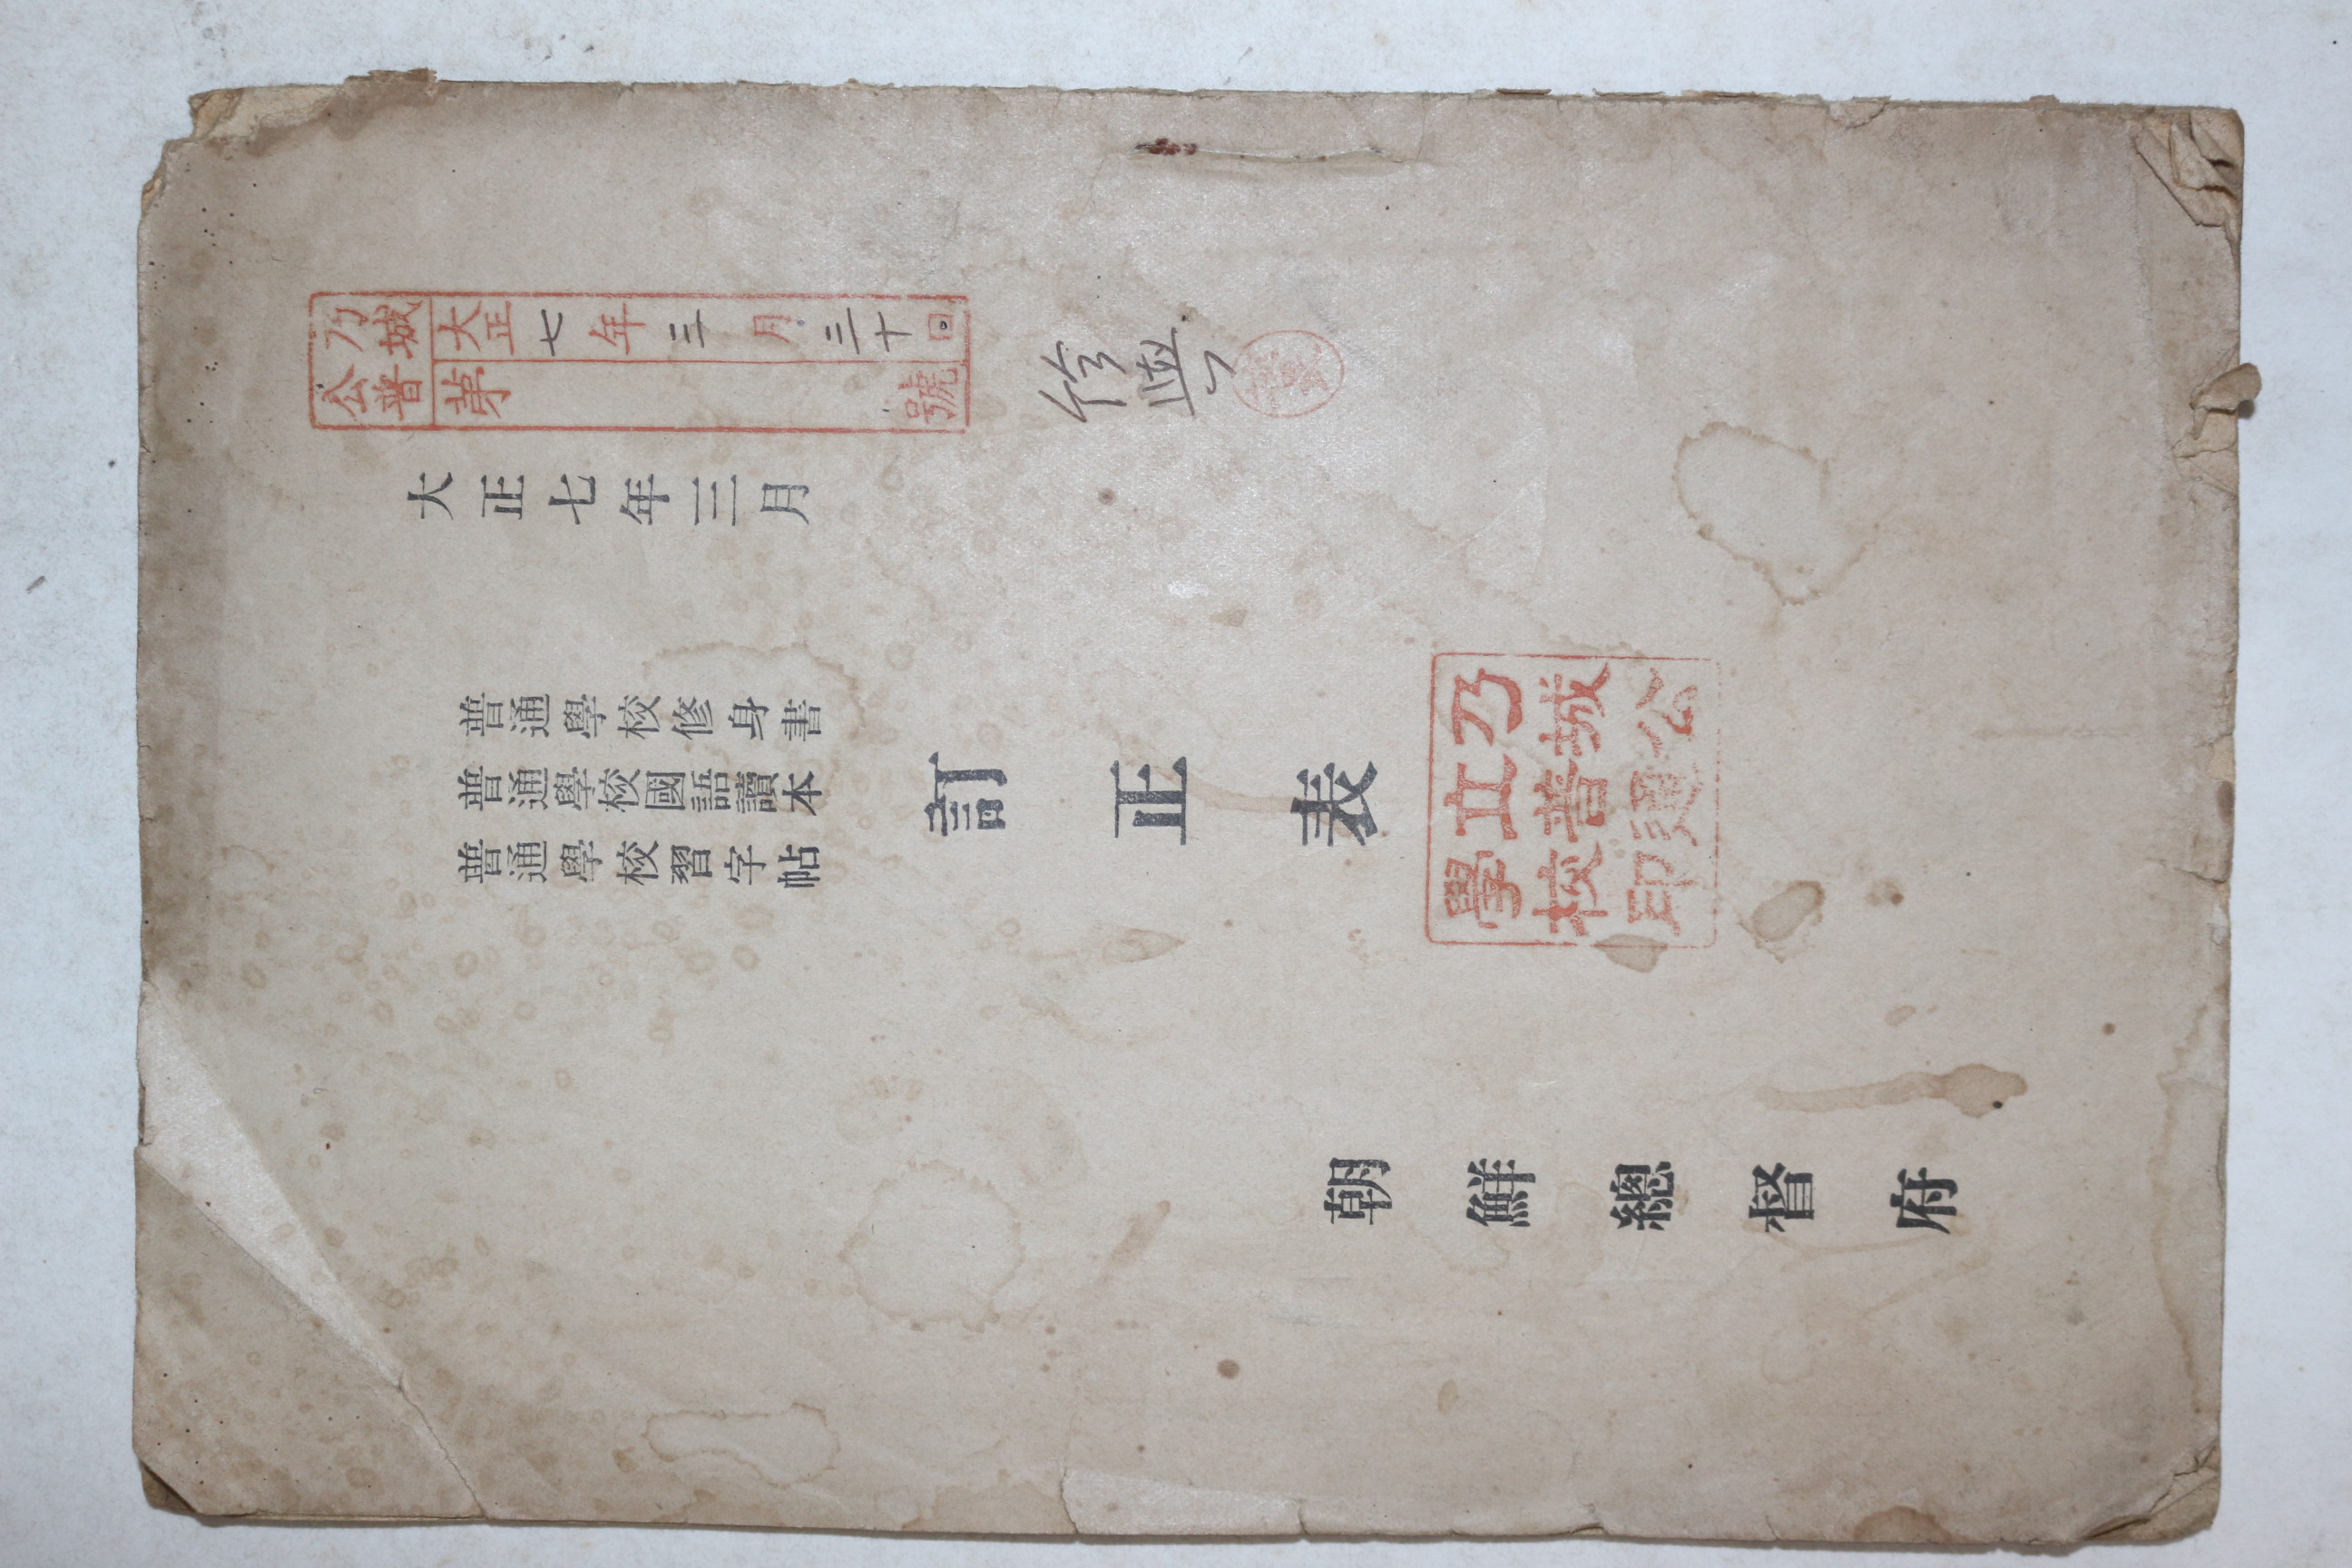 乃城
公普
大正七年三月三十日
第 號
大正七年三月
普通學校修身書
普通學校國語讀本
普通學校習字帖
訂正表
乃城公
立普通
學校印
朝鮮總督府